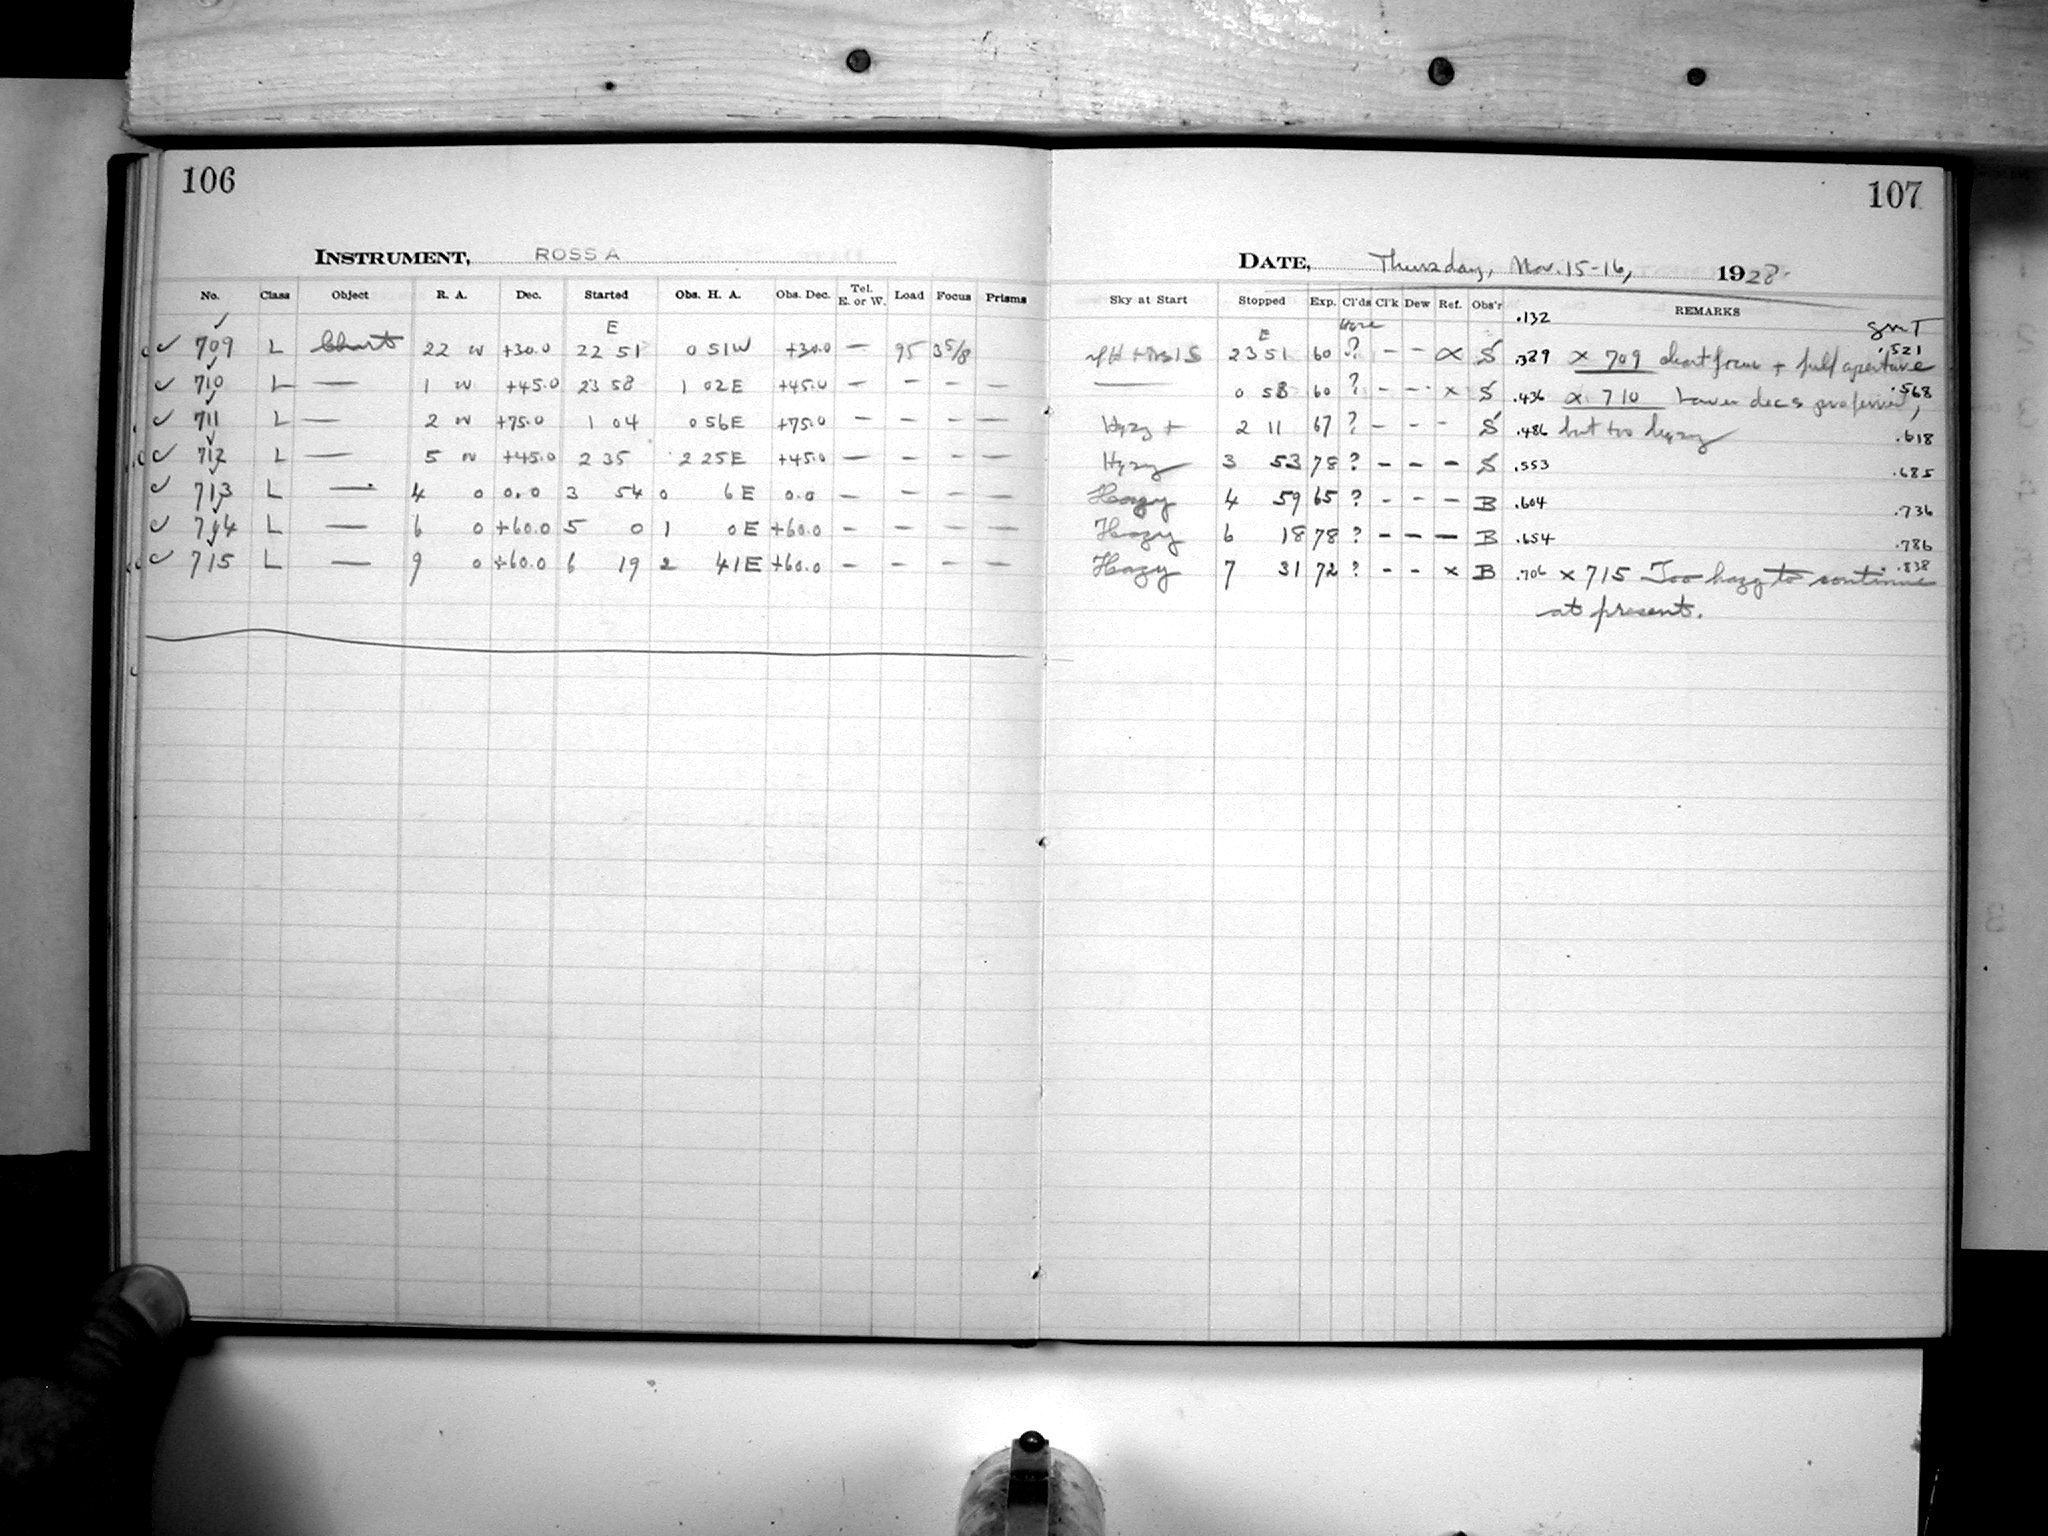 106
107
INSTRUMENT, ROSS A
DATE, Thursday, Nov. 15-16, 1928
No. Class Object R. A. Dec. Started Obs. H. A. Obs. Dec. Tel. E. or W. Load Focus Prisms
Sky at Start Stopped Exp. Cl'ds Cl'k Dew Ref. Obs'r REMARKS
.132 GMT
E
E
✓ 709 L Chart 22 N +30.0 22 51 0 51W +30.0 — 95 3 5/8
23 51 60 ? – – x S .389 x 709 chart focus + full aperture .521
✓ 710 L — 1 N +45.0 23 58 1 02E +45.0 — — — —
0 58 60 ? – – x S .436 x 710 Lower decs preferred, .568
✓ 711 L — 2 N +75.0 1 04 0 56E +75.0 — — — —
Hazy + 2 11 67 ? – – – S .486 but too hazy .618
✓ 712 L — 5 N +45.0 2 35 2 25E +45.0 — — — —
Hazy 3 53 78 ? – – – S .553 .685
✓ 713 L — 4 0 0.0 3 54 0 6E 0.0 — — — —
Hazy 4 59 65 ? – – – B .604 .736
✓ 714 L — 6 0 +60.0 5 0 1 0E +60.0 — — — —
Hazy 6 18 78 ? – – – B .654 .786
✓ 715 L — 9 0 +60.0 6 19 2 41E +60.0 — — — —
Hazy 7 31 72 ? – – x B .706 x 715 Too hazy to continue .838
at present.